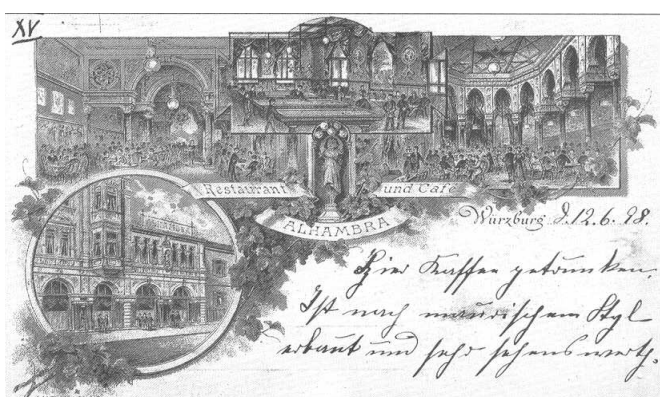 XV
Restaurant und Café
ALHAMBRA
Würzburg d. 12.6.98.
Hier Kaffee getrunken.
Ist nach maurischem Styl
erbaut und sehr sehenswerth.